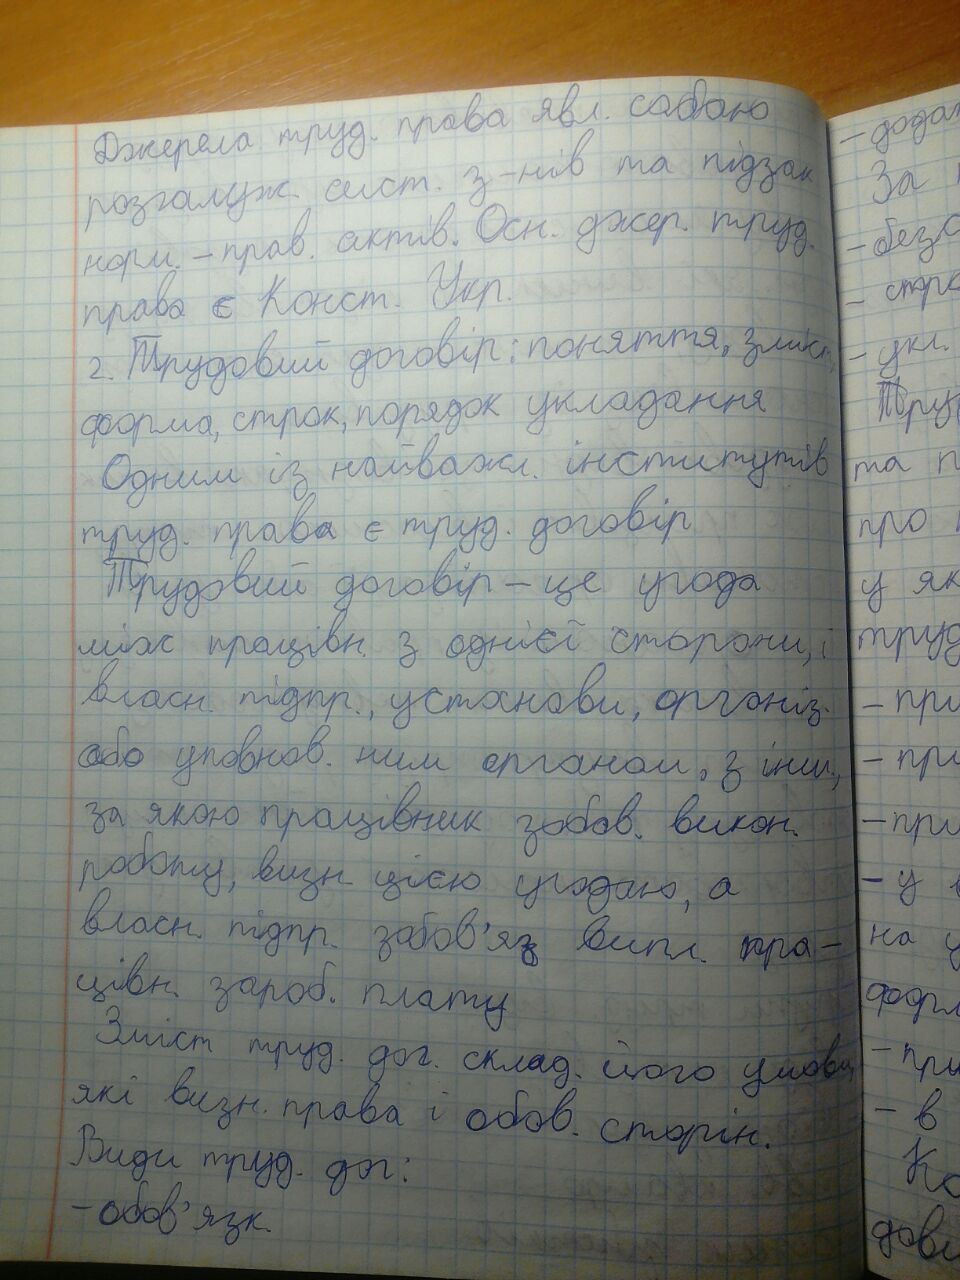 Джерела труд. права явл. сабою
розгалуж. сист. з-нів та підзак
норм. - прав. актів. Осн. джер. труд.
права є Конст. Укр.
2. Трудовий договір: поняття, зміст,
форма, строк, порядок укладання
Одним із найважл. інститутів
труд. права є труд. договір
Трудовий договір - це угода
між працівн. з однієї сторони, і
власн. підпр., установи, організ.
або уповнов. ним органом, з інш.,
за якою працівник зобов. викон.
роботу, визн. цією угодаю, а
власн. підпр. забов'яз випл. пра-
цівн. зароб. плату
Зміст труд. дог. склад. його умови,
які визн. права і обов. сторін.
Види труд. дог:
- обов'язк.
- додат
За
- безс
- стро
- укл.
Труд
та п
про
у як
труд
- при
- при
- при
- у
на у
форм
- при
- в
Ко
дови